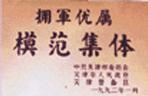 拥軍优属
模范集体
中共天津市委员会
天津市人民政府
天津警备区
一九九二年一月